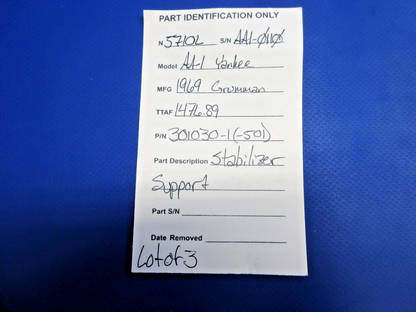 PART IDENTIFICATION ONLY
N 5710L S/N AA1-0110
Model AA-1 Yankee
MFG 1969 Grumman
TTAF 1476.89
P/N 301030-1(-501)
Part Description Stabilizer
Support
Part S/N
Date Removed
Lot of 3